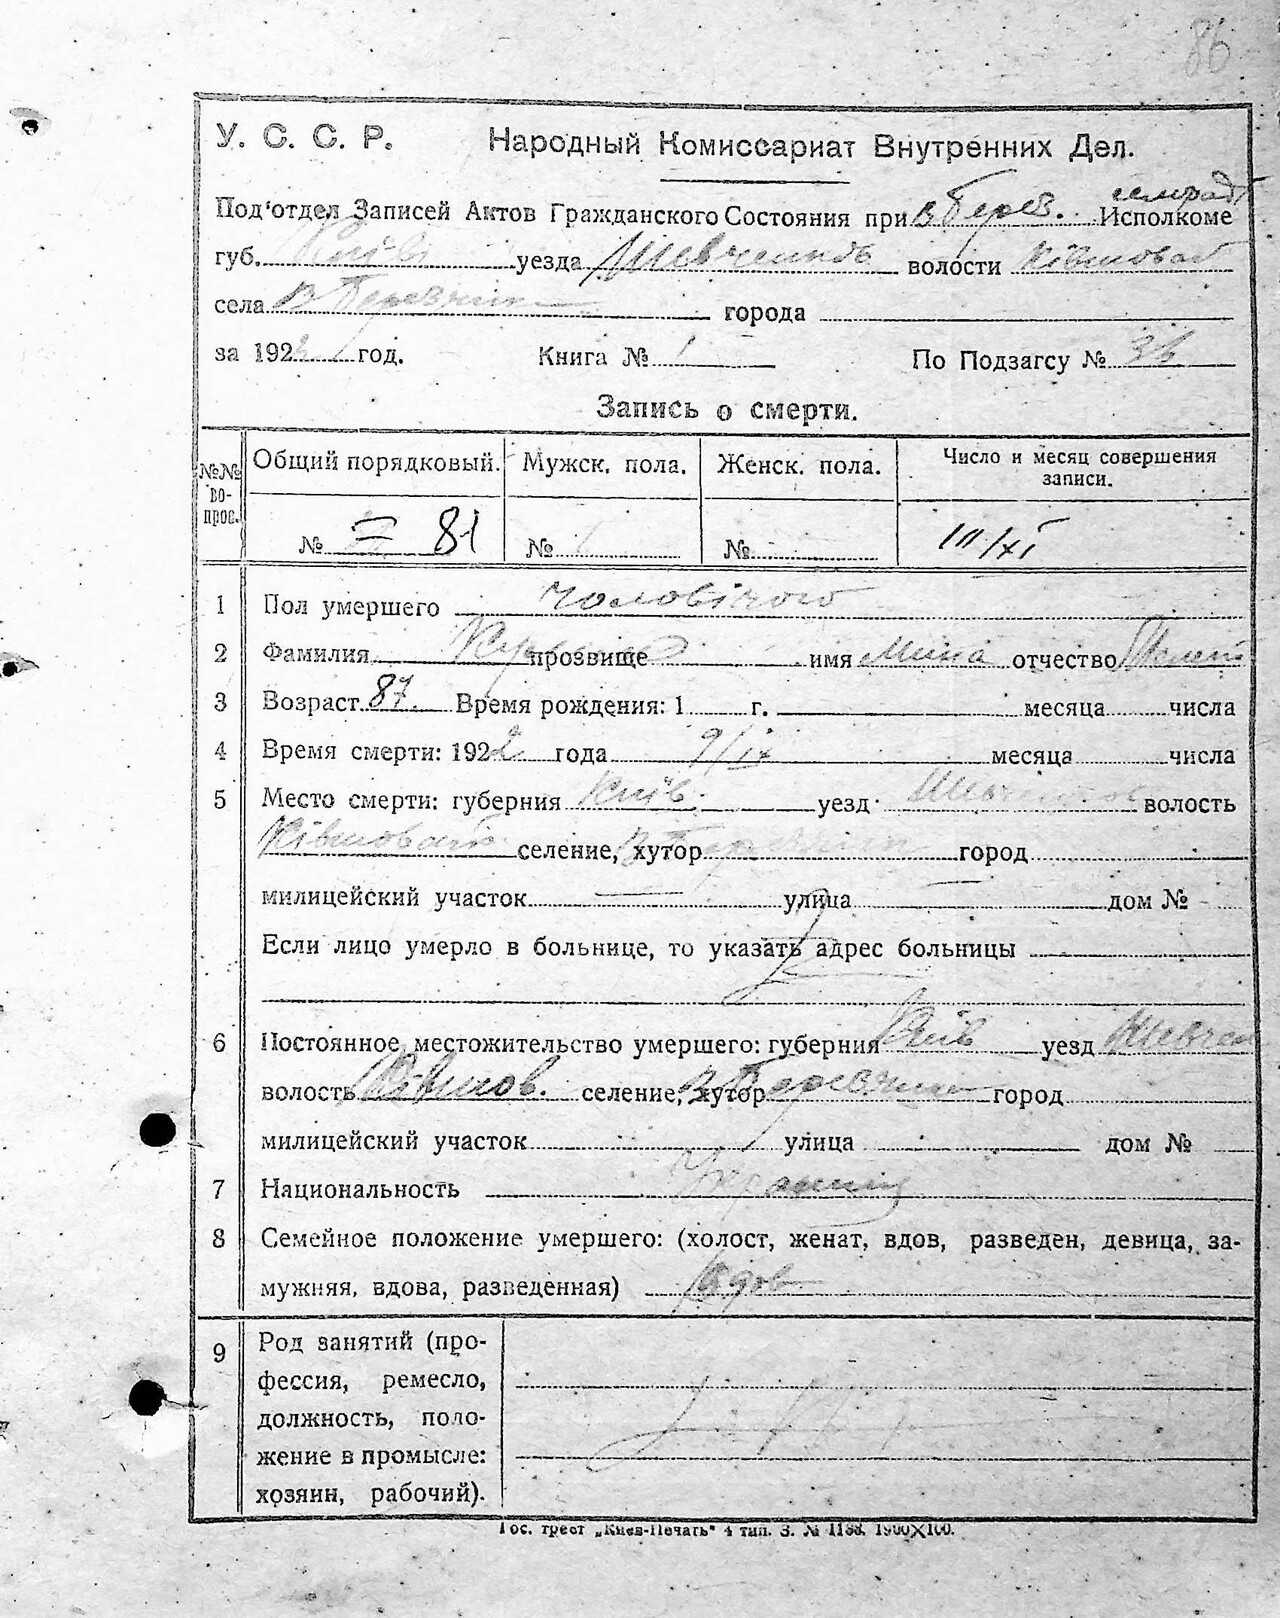 86
У. С. С. Р. Народный Комиссариат Внутренних Дел.
Под'отдел Записей Актов Гражданского Состояния при В Берез. Исполкоме
губ. Київ уезда Шевченків волости Ківшоват
села В Березян города
за 1922 год. Книга № 1 По Подзагсу №
Запись о смерти.
№№ вопрос. Общий порядковый. Мужск. пола. Женск. пола. Число и месяц совершения записи.
№ 81 № № /XI
1 Пол умершего чоловічого
2 Фамилия прозвище имя Мина отчество
3 Возраст 87. Время рождения: 1 г. месяца числа
4 Время смерти: 1922 года 9/IX месяца числа
5 Место смерти: губерния Київ. уезд волость
Ківшоват селение, хутор В Березян город
милицейский участок — улица — дом № -
Если лицо умерло в больнице, то указать адрес больницы
6 Постоянное местожительство умершего: губерния Київ уезд Шевчен
волость Ківшов. селение, хутор В Березян город
милицейский участок улица дом №
7 Национальность
8 Семейное положение умершего: (холост, женат, вдов, разведен, девица, за-
мужняя, вдова, разведенная) Вдов
9 Род занятий (про-
фессия, ремесло,
должность, поло-
жение в промысле:
хозяин, рабочий).
Гос. трест „Киев-Печать" 4 тип. З. № 1188. 1900X100.